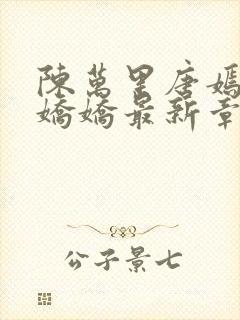 陳萬里唐嫣
嬌嬌最新章
公子景七